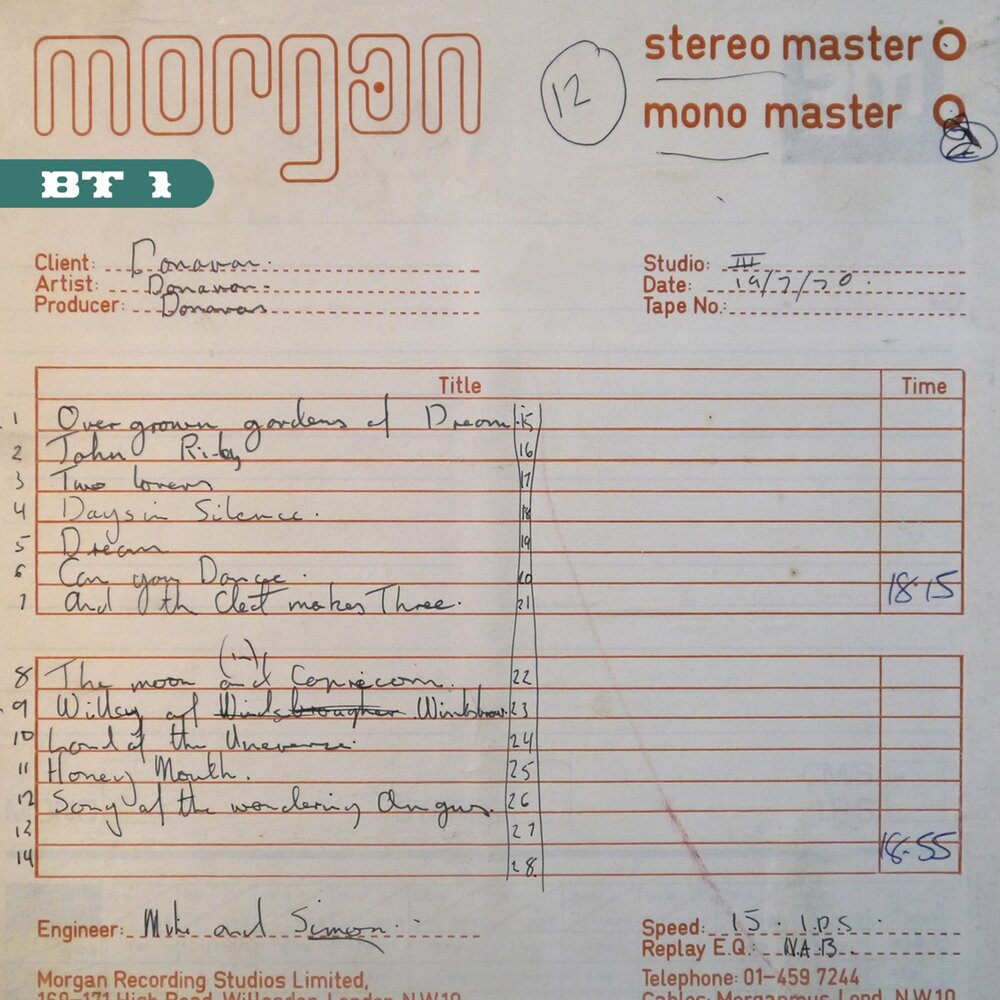 morgan
stereo master
12
mono master
2
BT 1
Client: Donavan.
Artist: Donavon.
Producer: Donavan
Studio: III
Date: 19/7/70.
Tape No.:
Title Time
1 Overgrown gardens of Dream 15
2 John Riley 16
3 Two lovers 17
4 Days in Silence. 18
5 Dream 19
6 Can you Dance. 20
7 And the Clect makes Three. 21 18.15
(in)
8 The moon and Capricorn. 22
9 Willsy of Windsbrougher Winsbrow 23
10 Land of the Universe. 24
11 Honey Mouth. 25
12 Song of the wondering Angus. 26
12 27
14 28. 18.55
Engineer: Mike and Simon.
Speed: 15. I.P.S.
Replay E.Q.: N.A.B.
Morgan Recording Studios Limited,
169-171 High Road, Willesden, London N.W.10
Telephone: 01-459 7244
Cables: Morganmus Lond. N.W.10